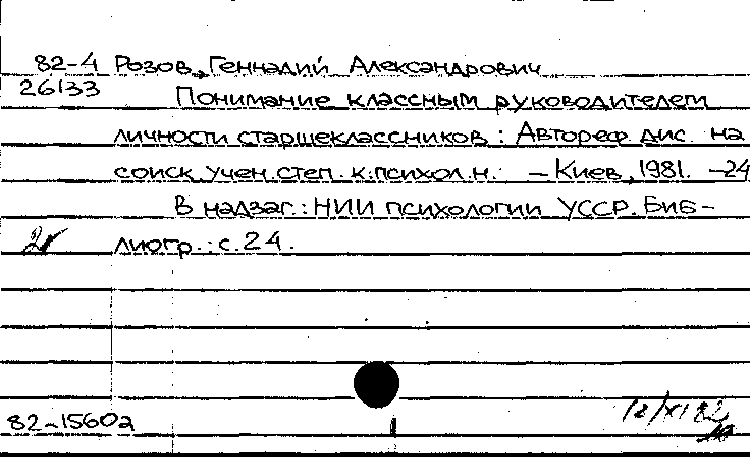 82-4 Розов, Геннадий Александрович
26133 Понимание классным руководителем
личности старшеклассников: Автореф дис. на
соиск. учен. степ. к. психол. н. - Киев, 1981. -24
В надзаг.: НИИ психологии УССР. Биб-
лиогр.: с. 24.
82-15602
12/XI 82